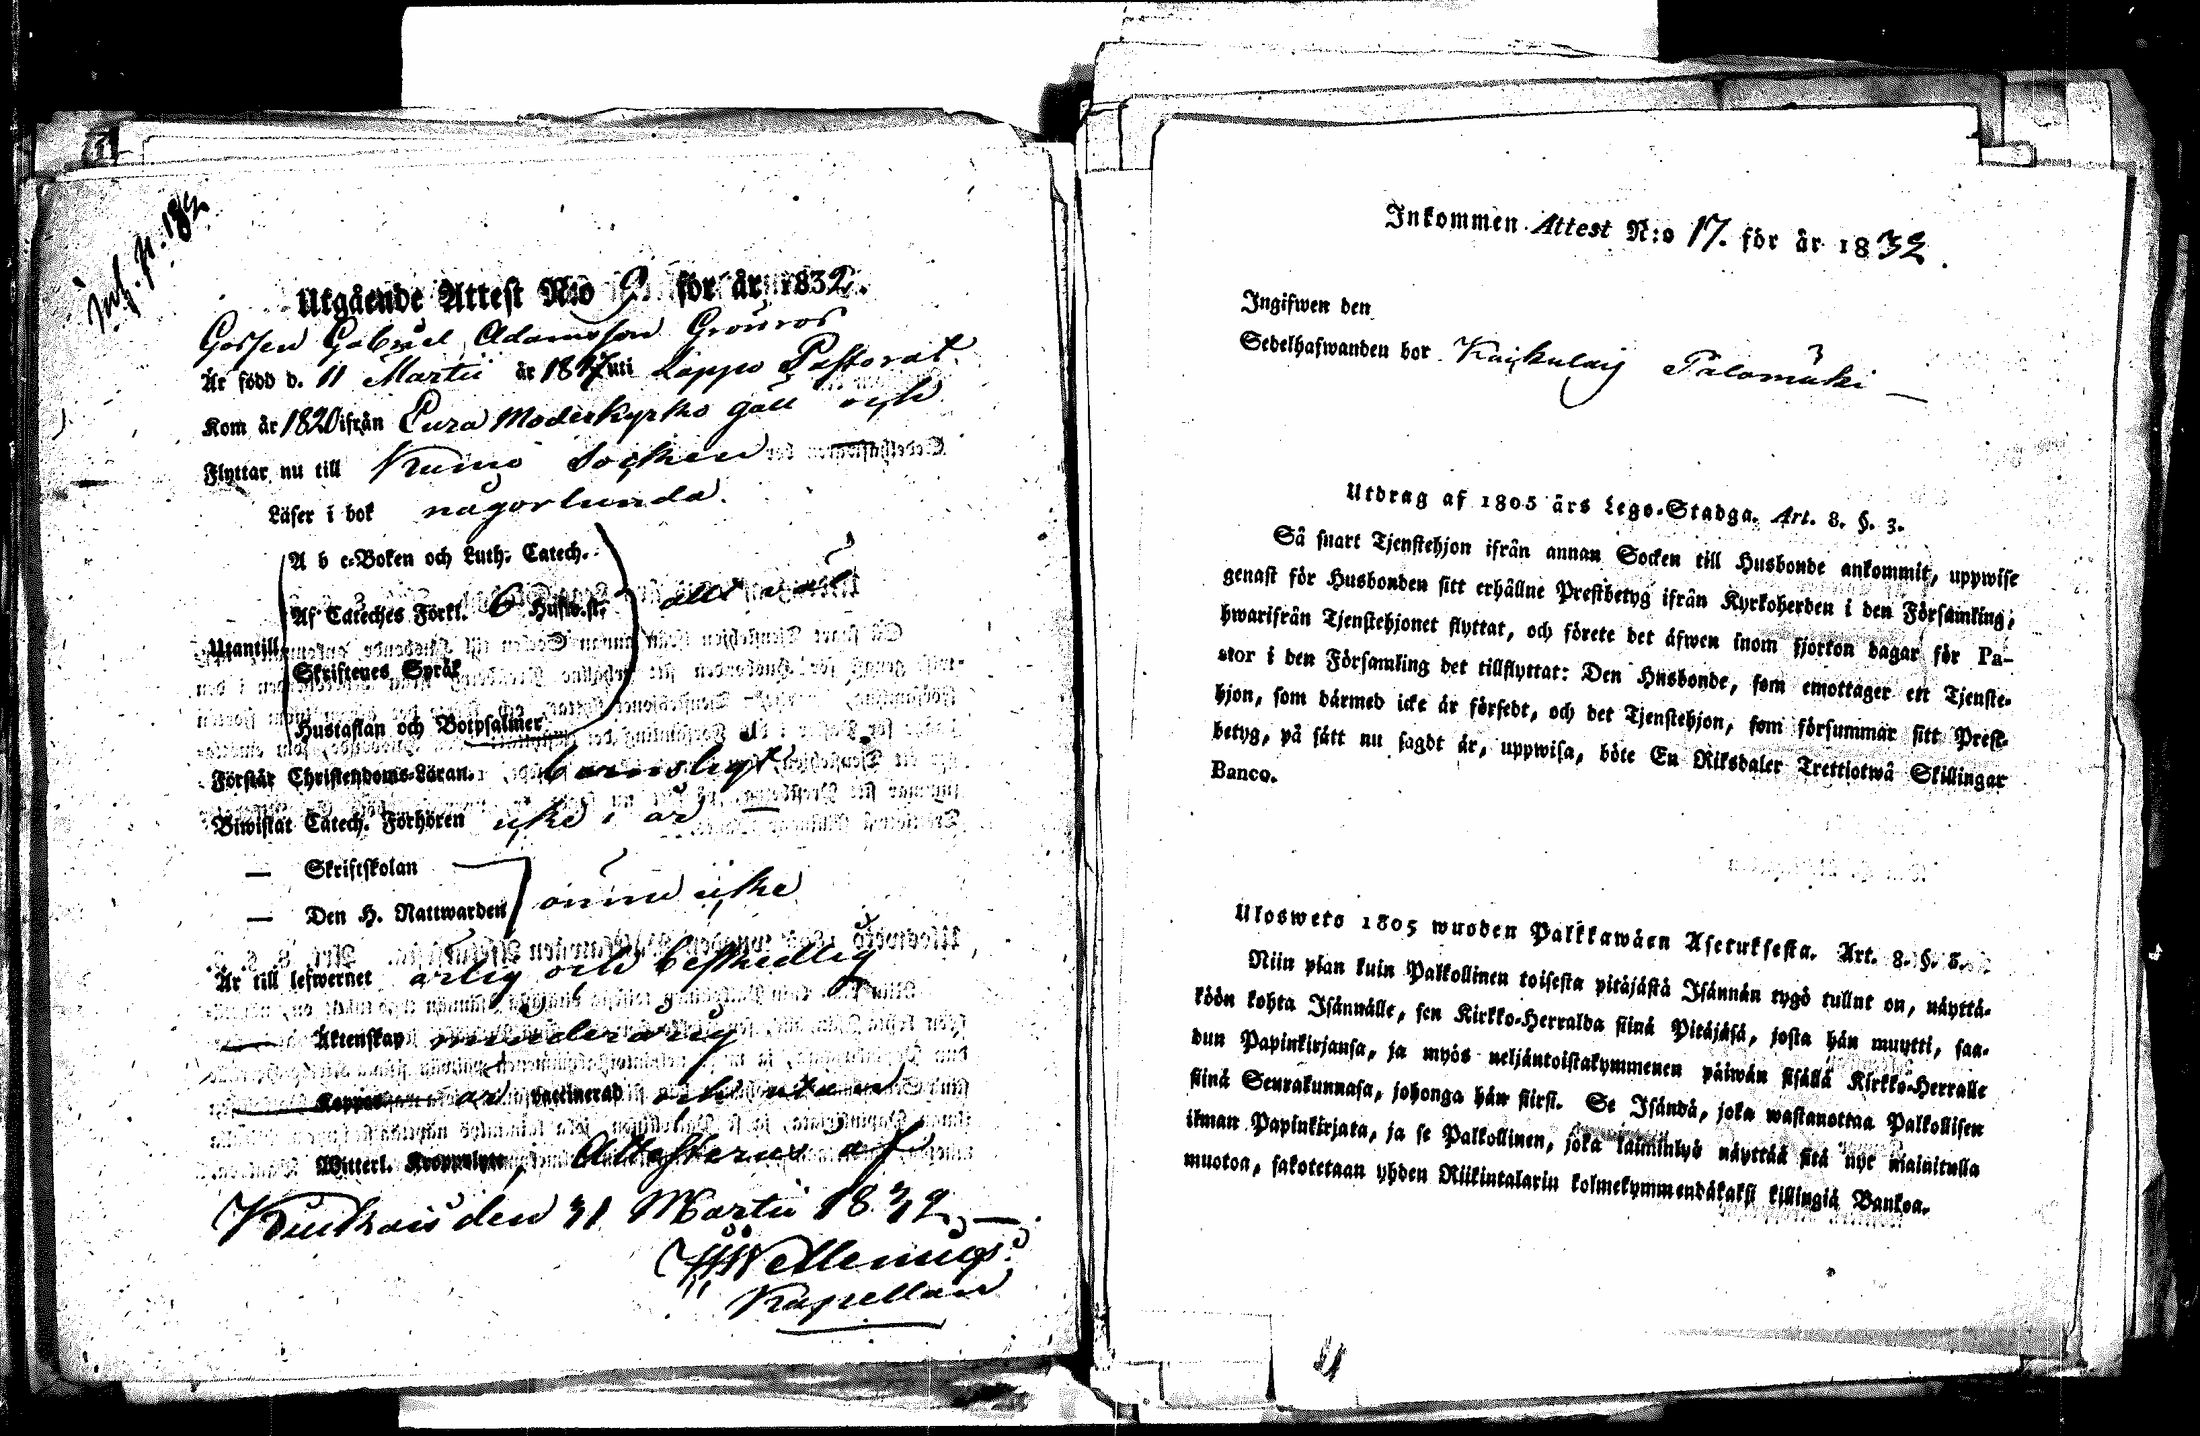 Utgående Attest N:o 9. för år 1832.
Gossen Gabriel Adamsson Grönros
Är född d. 11 Martii år 1817 uti Lappo Pastorat
Kom år 1820 ifrån Eura Moderkyrko gäll och
Flyttar nu till Kumo Socken
Läser i bok någorlunda.
A b c-Boken och Luth. Catech.
Af Cateches Förkl. 6 Husw.st. allt väl
Utantill
Skriftenes Språk
Hustaflan och Botpsalmer
Förstår Christendoms-Läran. barnsligt
Biwistat Catech. Förhören icke i år —
— Skriftskolan
— Den H. Nattwarden ännu icke
Är till lefwernet ärlig och beskedlig
— Äktenskap minderårig
Koppor är vaccinerad och utan
Witterl. Kroppslyte, Attesteras af
Kiukais den 31 Martii 1832. —
Kapellan
Inkommen Attest N:o 17. för år 1832.
Ingifwen den
Sedelhafwanden bor Palomäki —
Utdrag af 1805 års Lego-Stadga. Art. 8. §. 3.
Så snart Tjenstehjon ifrån annan Socken till Husbonde ankommit, uppwise
genast för Husbonden sitt erhållne Prestbetyg ifrån Kyrkoherden i den Församling,
hwarifrån Tjenstehjonet flyttat, och förete det äfwen inom fjorton dagar för Pa-
stor i den Församling det tillflyttat: Den Husbonde, som emottager ett Tjenste-
hjon, som därmed icke är försedt, och det Tjenstehjon, som försummar sitt Prest-
betyg, på sätt nu sagdt är, uppwisa, böte En Riksdaler Trettiotwå Skillingar
Banco.
Ulosweto 1805 wuoden Palkkawäen Asetuksesta. Art. 8. §. 3.
Niin pian kuin Palkollinen toisesta pitäjästä Isännän tygö tullut on, näyttä-
köön kohta Isännälle, sen Kirkko-Herralda siinä Pitäjäsä, josta hän muutti, saa-
dun Papinkirjansa, ja myös neljäntoistakymmenen päiwän sisällä Kirkko-Herralle
siinä Seurakunnasa, johonga hän siirsi. Se Isändä, joka wastanottaa Palkollisen
ilman Papinkirjata, ja se Palkollinen, joka laiminlyö näyttää sitä nyt mainitulla
muotoa, sakotetaan yhden Riikintalarin kolmekymmendäkaksi killingiä Bankoa.